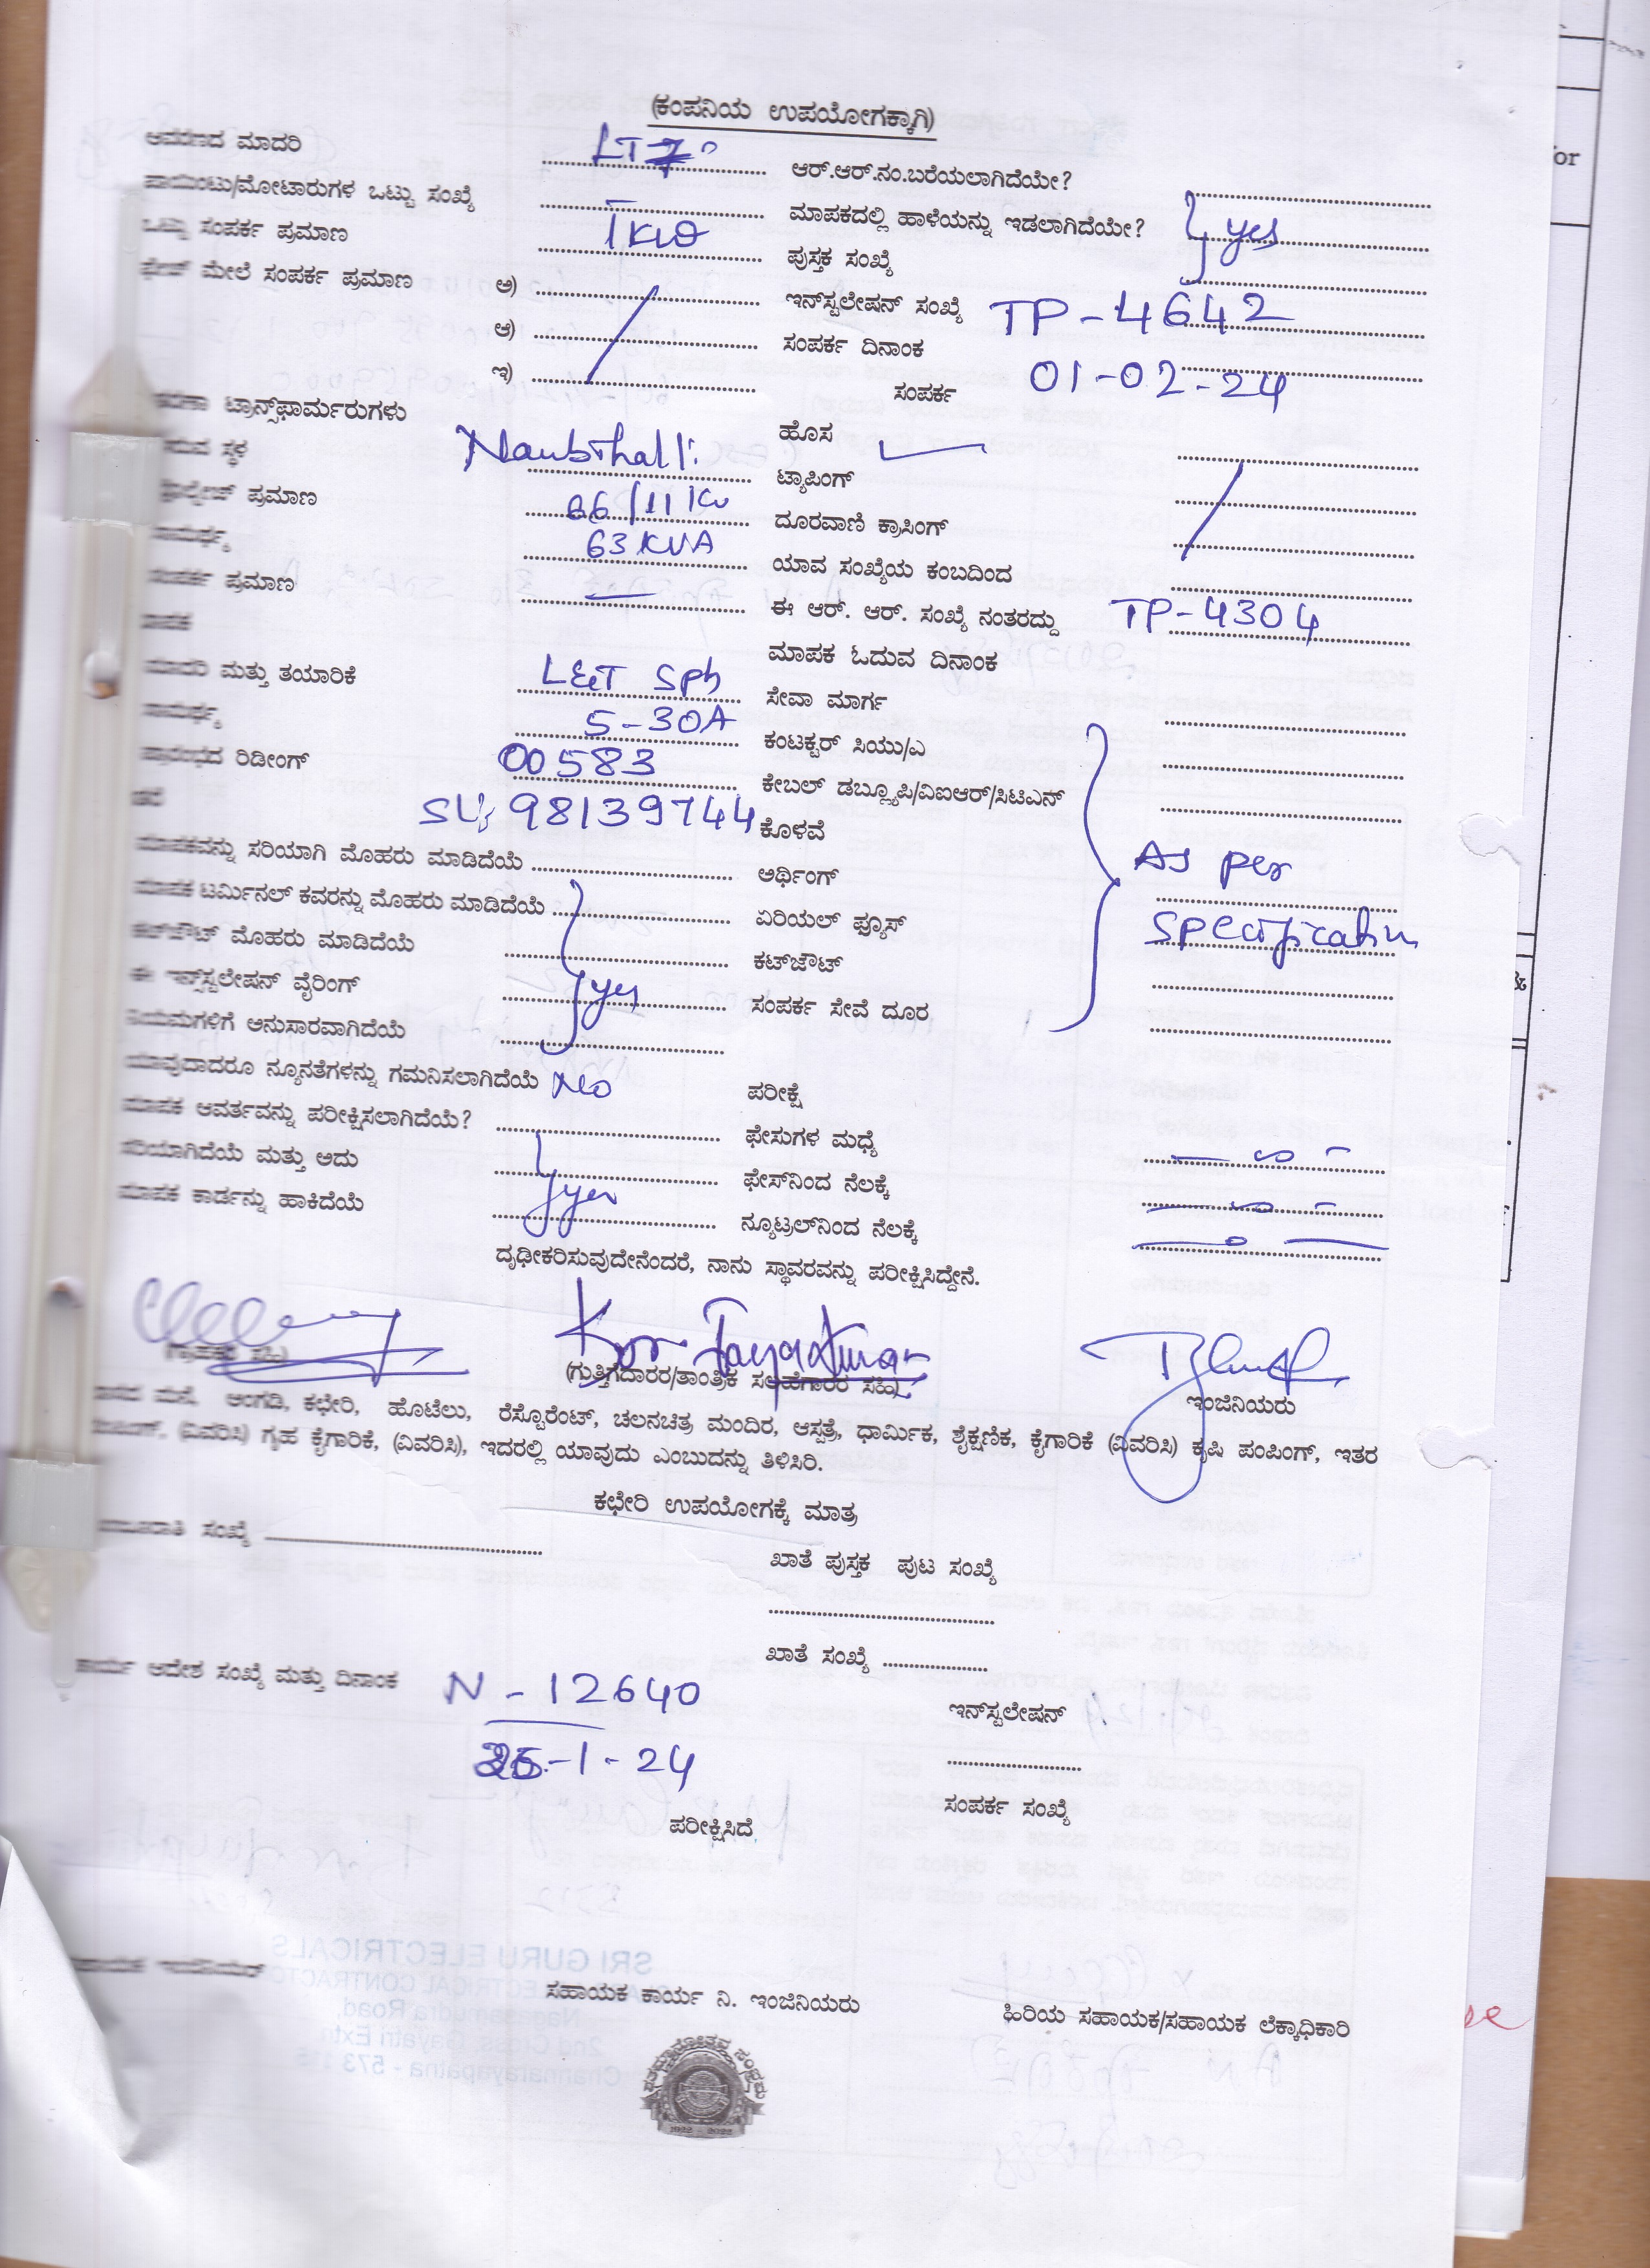 (ಕಂಪನಿಯ ಉಪಯೋಗಕ್ಕಾಗಿ)
ಆವರಣದ ಮಾದರಿ LT7 ಆರ್.ಆರ್.ನಂ.ಬರೆಯಲಾಗಿದೆಯೇ?
ಪಾಯಿಂಟು/ಮೋಟಾರುಗಳ ಒಟ್ಟು ಸಂಖ್ಯೆ ಮಾಪಕದಲ್ಲಿ ಹಾಳೆಯನ್ನು ಇಡಲಾಗಿದೆಯೇ? yes
ಒಟ್ಟು ಸಂಪರ್ಕ ಪ್ರಮಾಣ 1KW ಪುಸ್ತಕ ಸಂಖ್ಯೆ
ಫೇಜ್ ಮೇಲೆ ಸಂಪರ್ಕ ಪ್ರಮಾಣ ಅ) ಇನ್‌ಸ್ಟಲೇಷನ್ ಸಂಖ್ಯೆ TP-4642
ಆ) ಸಂಪರ್ಕ ದಿನಾಂಕ 01-02-24
ಇ) ಸಂಪರ್ಕ
ಟ್ರಾನ್ಸ್‌ಫಾರ್ಮರುಗಳು ಹೊಸ
ಸ್ಥಳ ಟ್ಯಾಪಿಂಗ್
ಪ್ರಮಾಣ 66/11 KV ದೂರವಾಣಿ ಕ್ರಾಸಿಂಗ್
ಸಾಮರ್ಥ್ಯ 63 KVA ಯಾವ ಸಂಖ್ಯೆಯ ಕಂಬದಿಂದ
ಸಂಪರ್ಕ ಪ್ರಮಾಣ ಈ ಆರ್. ಆರ್. ಸಂಖ್ಯೆ ನಂತರದ್ದು TP-4304
ಮಾಪಕ ಮಾಪಕ ಓದುವ ದಿನಾಂಕ
ಮಾದರಿ ಮತ್ತು ತಯಾರಿಕೆ L&T Sph ಸೇವಾ ಮಾರ್ಗ
ಸಾಮರ್ಥ್ಯ 5-30A ಕಂಟಕ್ಟರ್ ಸಿಯು/ಎ
ಪ್ರಾರಂಭದ ರಿಡೀಂಗ್ 00583 ಕೇಬಲ್ ಡಬ್ಲ್ಯೂಪಿ/ವಿಐಆರ್/ಸಿಟಿಎನ್
98139744 ಕೊಳವೆ
ಮಾಪಕವನ್ನು ಸರಿಯಾಗಿ ಮೊಹರು ಮಾಡಿದೆಯೆ ಅರ್ಥಿಂಗ್ As per
ಮಾಪಕ ಟರ್ಮಿನಲ್ ಕವರನ್ನು ಮೊಹರು ಮಾಡಿದೆಯೆ ಏರಿಯಲ್ ಫ್ಯೂಸ್ specification
ಕಟ್‌ಔಟ್ ಮೊಹರು ಮಾಡಿದೆಯೆ ಕಟ್‌ಔಟ್
ಈ ಇನ್‌ಸ್ಟಲೇಷನ್ ವೈರಿಂಗ್ yes ಸಂಪರ್ಕ ಸೇವೆ ದೂರ
ನಿಯಮಗಳಿಗೆ ಅನುಸಾರವಾಗಿದೆಯೆ
ಯಾವುದಾದರೂ ನ್ಯೂನತೆಗಳನ್ನು ಗಮನಿಸಲಾಗಿದೆಯೆ No ಪರೀಕ್ಷೆ
ಮಾಪಕ ಆವರ್ತವನ್ನು ಪರೀಕ್ಷಿಸಲಾಗಿದೆಯೆ? ಫೇಸುಗಳ ಮಧ್ಯೆ
ಸರಿಯಾಗಿದೆಯೆ ಮತ್ತು ಅದು ಫೇಸ್‌ನಿಂದ ನೆಲಕ್ಕೆ
ಮಾಪಕ ಕಾರ್ಡನ್ನು ಹಾಕಿದೆಯೆ yes ನ್ಯೂಟ್ರಲ್‌ನಿಂದ ನೆಲಕ್ಕೆ
ದೃಢೀಕರಿಸುವುದೇನೆಂದರೆ, ನಾನು ಸ್ಥಾವರವನ್ನು ಪರೀಕ್ಷಿಸಿದ್ದೇನೆ.
(ಗ್ರಾಹಕರ ಸಹಿ) (ಗುತ್ತಿಗೆದಾರರ/ತಾಂತ್ರಿಕ ಸಲಹೆಗಾರರ ಸಹಿ) ಇಂಜಿನಿಯರು
ಮನೆ, ಅಂಗಡಿ, ಕಛೇರಿ, ಹೊಟೇಲು, ರೆಸ್ಟೊರೆಂಟ್, ಚಲನಚಿತ್ರ ಮಂದಿರ, ಆಸ್ಪತ್ರೆ, ಧಾರ್ಮಿಕ, ಶೈಕ್ಷಣಿಕ, ಕೈಗಾರಿಕೆ (ವಿವರಿಸಿ) ಕೃಷಿ ಪಂಪಿಂಗ್, ಇತರ
(ವಿವರಿಸಿ) ಗೃಹ ಕೈಗಾರಿಕೆ, (ವಿವರಿಸಿ), ಇದರಲ್ಲಿ ಯಾವುದು ಎಂಬುದನ್ನು ತಿಳಿಸಿರಿ.
ಕಛೇರಿ ಉಪಯೋಗಕ್ಕೆ ಮಾತ್ರ
ಸಂಖ್ಯೆ ಖಾತೆ ಪುಸ್ತಕ ಪುಟ ಸಂಖ್ಯೆ
ಖಾತೆ ಸಂಖ್ಯೆ
ಕಾರ್ಯ ಆದೇಶ ಸಂಖ್ಯೆ ಮತ್ತು ದಿನಾಂಕ N-12640 ಇನ್‌ಸ್ಟಲೇಷನ್
-1-24
ಸಂಪರ್ಕ ಸಂಖ್ಯೆ
ಪರೀಕ್ಷಿಸಿದೆ
ಸಹಾಯಕ ಇಂಜಿನಿಯರ್ ಸಹಾಯಕ ಕಾರ್ಯ ನಿ. ಇಂಜಿನಿಯರು ಹಿರಿಯ ಸಹಾಯಕ/ಸಹಾಯಕ ಲೆಕ್ಕಾಧಿಕಾರಿ
1922 - 2022